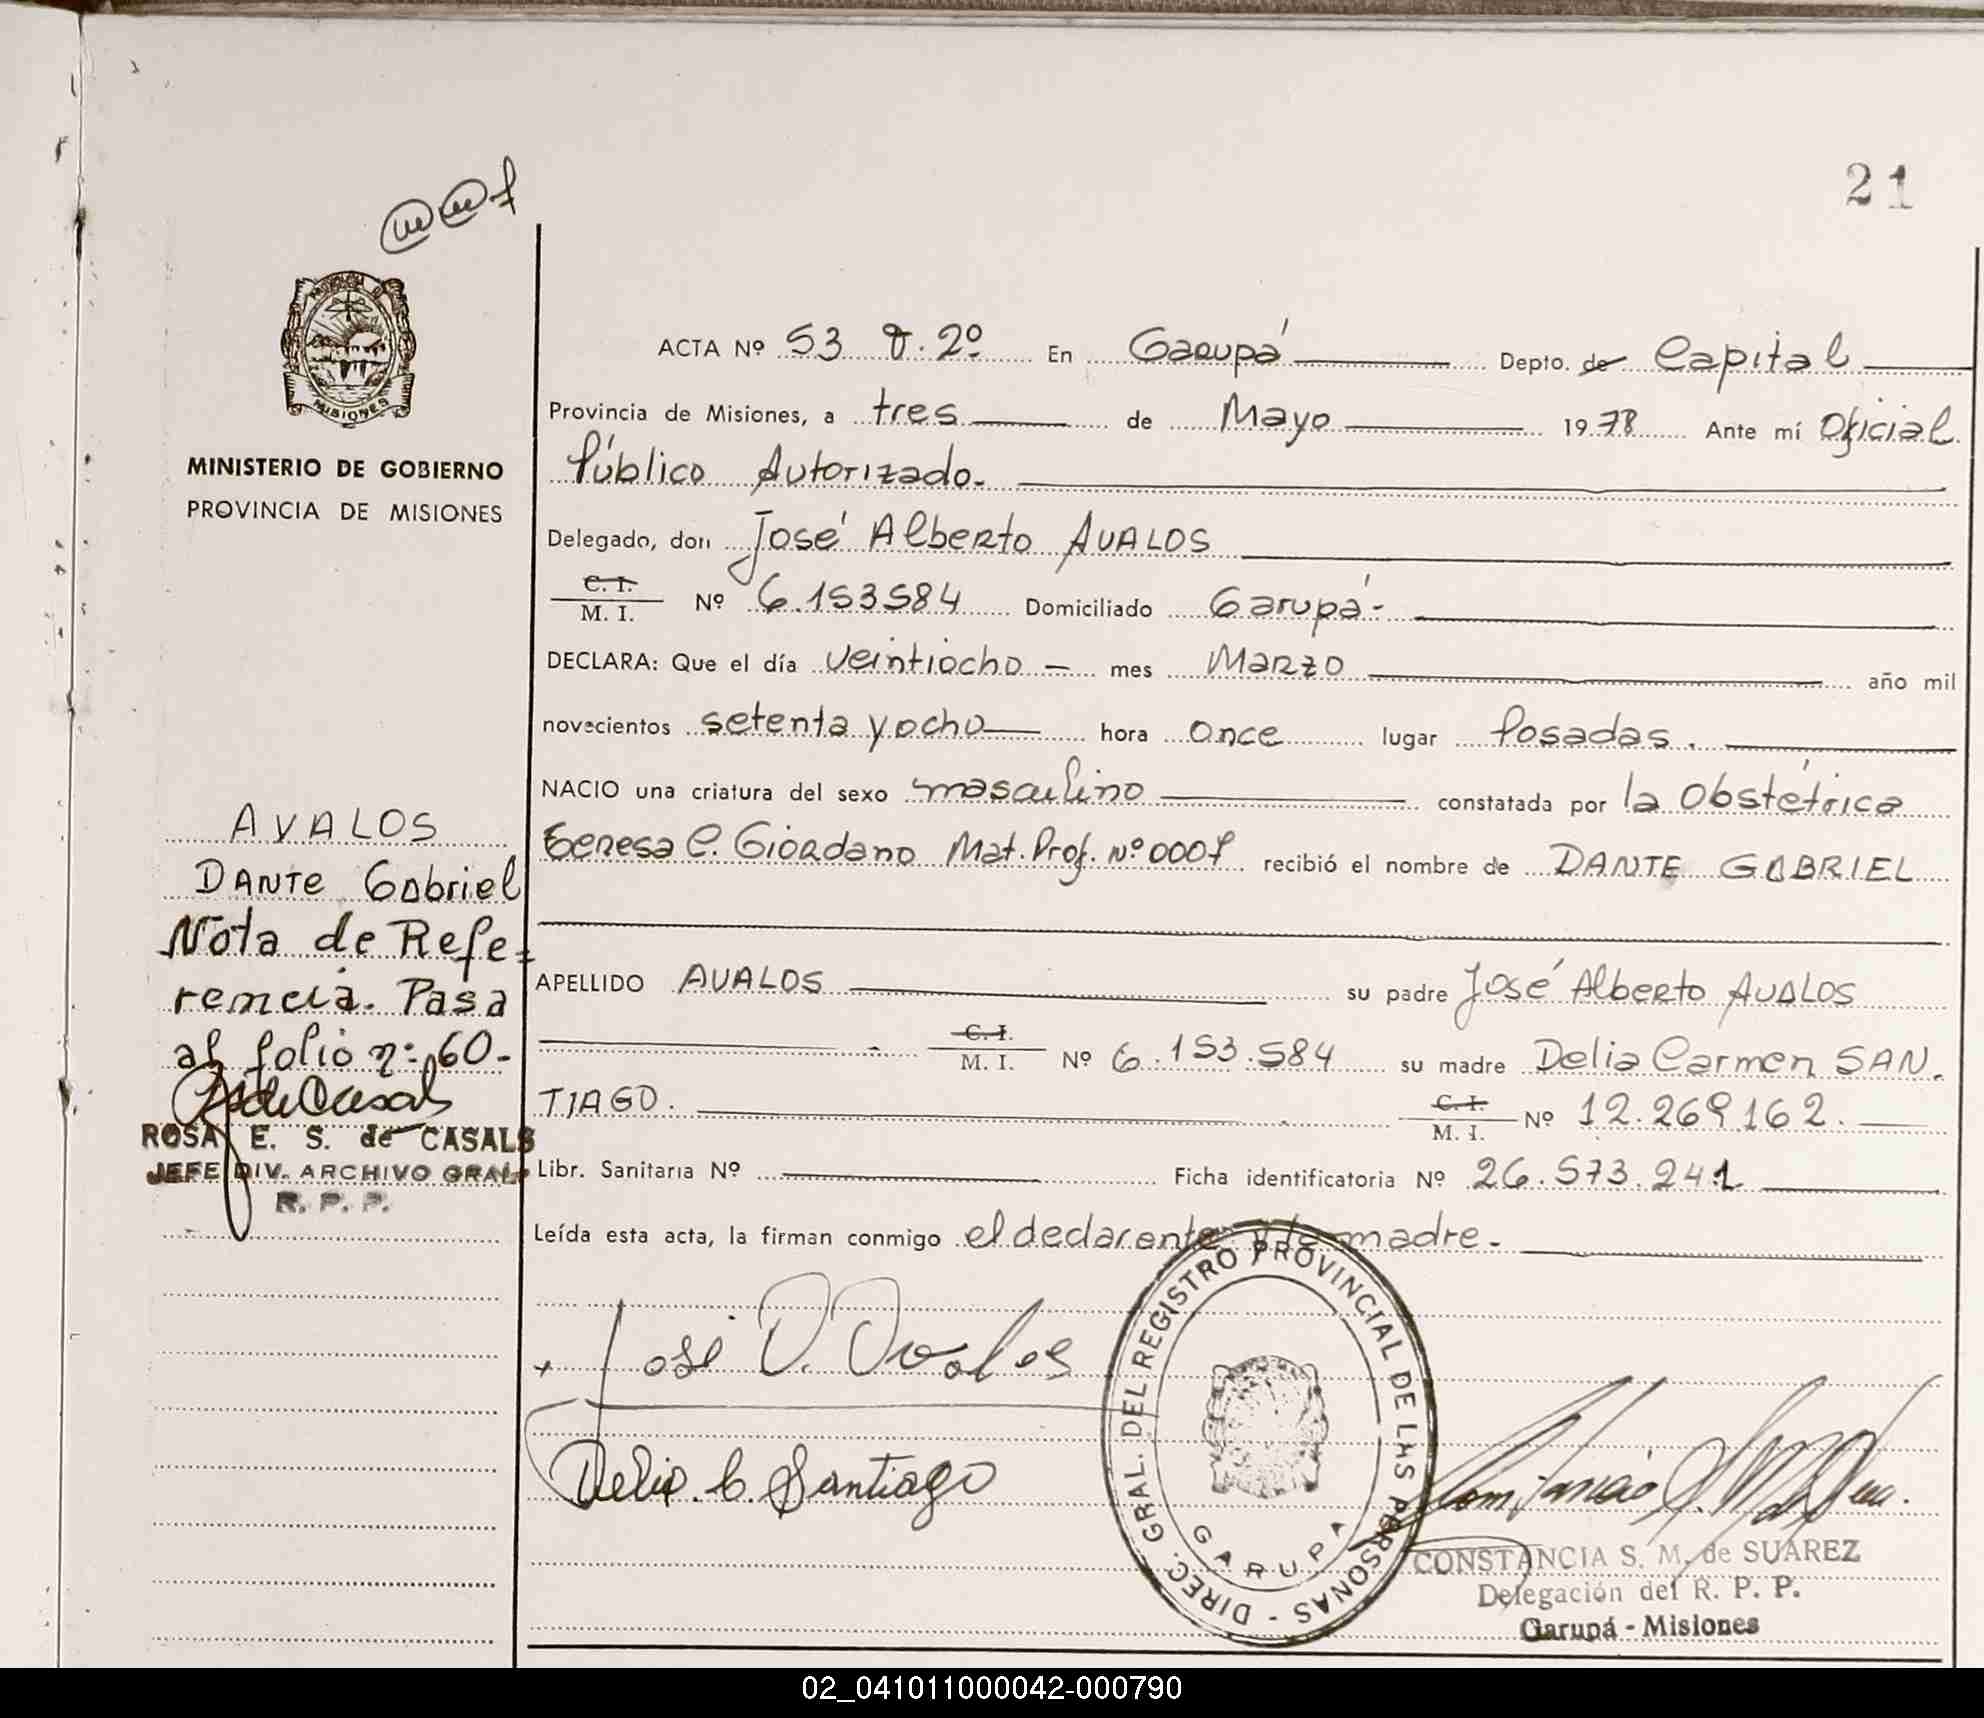 21
MISIONES
MINISTERIO DE GOBIERNO
PROVINCIA DE MISIONES
AVALOS
DANTE Gabriel
Nota de Refe=
rencia. Pasa
al folio nº 60-
ROSA E. S. de CASALS
JEFE DIV. ARCHIVO GRAL
R. P. P.
ACTA Nº 53 T. 2º En Garupá Depto. de Capital
Provincia de Misiones, a tres de Mayo 1978 Ante mí Oficial
Público Autorizado.
Delegado, don José Alberto AVALOS
C. I.
M. I. Nº 6.153584 Domiciliado Garupá-
DECLARA: Que el día veintiocho - mes Marzo año mil
novecientos setenta y ocho hora once lugar Posadas.
NACIO una criatura del sexo masculino constatada por la Obstétrica
Teresa C. Giordano Mat. Prof. Nº 0007 recibió el nombre de DANTE GABRIEL
APELLIDO AVALOS su padre José Alberto AVALOS
C. I.
M. I. Nº 6.153.584 su madre Delia Carmen SAN.
TIAGO. C. I.
M. I. Nº 12.269162.
Libr. Sanitaria Nº Ficha identificatoria Nº 26.573.241
Leída esta acta, la firman conmigo el declarante y la madre.-
José A. Avalos
Delia. C. Santiago
DIREC. GRAL. DEL REGISTRO PROVINCIAL DE LAS PERSONAS -
GARUPA
CONSTANCIA S. M. de SUAREZ
Delegación del R. P. P.
Garupá - Misiones
02_041011000042-000790